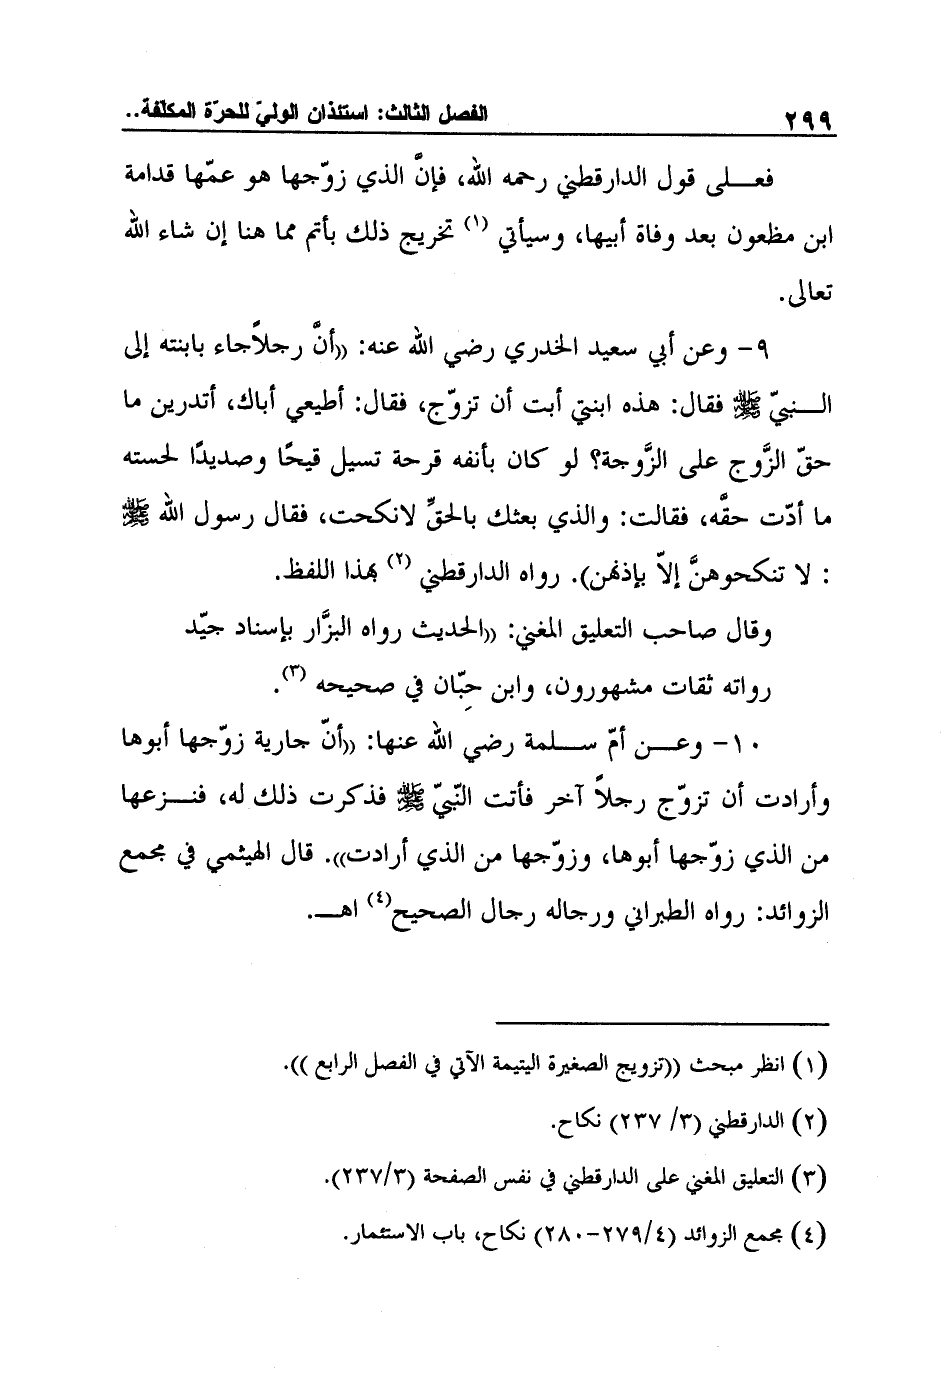 ٢٩٩ الفصل الثالث: استئذان الوليّ للحرّة المكلّفة..
فعـــلى قول الدارقطني رحمه الله، فإنَّ الذي زوّجها هو عمّها قدامة
ابن مظعون بعد وفاة أبيها، وسيأتي (١) تخريج ذلك بأتم مما هنا إن شاء الله
تعالى.
٩- وعن أبي سعيد الخدري رضي الله عنه: ((أنَّ رجلاًجاء بابنته إلى
الـــنبيّ ﷺ فقال: هذه ابنتي أبت أن تزوّج، فقال: أطيعي أباك، أتدرين ما
حقّ الزَّوج على الزَّوجة؟ لو كان بأنفه قرحة تسيل قيحًا وصديدًا لحسته
ما أدّت حقَّه، فقالت: والذي بعثك بالحقِّ لانكحت، فقال رسول الله ﷺ
: لا تنكحوهنَّ إلاّ بإذنهن). رواه الدارقطني (٢) بهذا اللفظ.
وقال صاحب التعليق المغني: ((الحديث رواه البزَّار بإسناد جيّد
رواته ثقات مشهورون، وابن حِبّان في صحيحه (٣).
١٠- وعـــن أمّ ســـلمة رضي الله عنها: ((أنّ جارية زوّجها أبوها
وأرادت أن تزوّج رجلاً آخر فأتت النّبيّ ﷺ فذكرت ذلك له، فنـــزعها
من الذي زوّجها أبوها، وزوّجها من الذي أرادت)). قال الهيثمي في مجمع
الزوائد: رواه الطبراني ورجاله رجال الصحيح(٤) اهـــ.
(١) انظر مبحث ((تزويج الصغيرة اليتيمة الآتي في الفصل الرابع )).
(٢) الدارقطني (٣/ ٢٣٧) نكاح.
(٣) التعليق المغني على الدارقطني في نفس الصفحة (٢٣٧/٣).
(٤) مجمع الزوائد (٢٧٩/٤-٢٨٠) نكاح، باب الاستئمار.